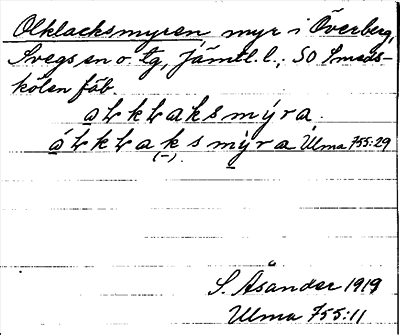 Olklacksmyren, myr i Överberg,
Svegs sn o. tg, Jämtl. l.; SO Smeds-
kölen fäb.
aƚkƚaksmýra.
áƚkƚaksmỳra Ulma 755:29
(-)
S. Åsander 1919
Ulma 755:11